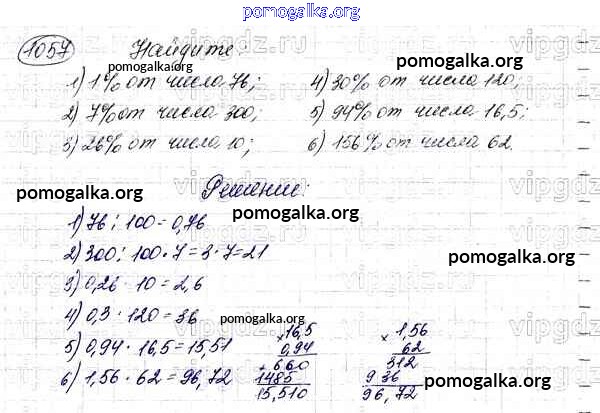 pomogalka.org
1057 Найдите:
1) 1% от числа 76; 4) 30% от числа 120;
2) 7% от числа 300; 5) 94% от числа 16,5;
3) 26% от числа 10; 6) 156% от числа 62.
pomogalka.org Решение: pomogalka.org
1) 76 : 100 = 0,76
2) 300 : 100 · 7 = 3 · 7 = 21 pomogalka.org
3) 0,26 · 10 = 2,6
4) 0,3 · 120 = 36 pomogalka.org
5) 0,94 · 16,5 = 15,51
6) 1,56 · 62 = 96,72
× 16,5
0,94
+ 660
1485
15,510
× 1,56
62
312
936
96,72
pomogalka.org
pomogalka.org
vipgdz.ru
vipgdz.ru
vipgdz.ru
vipgdz.ru